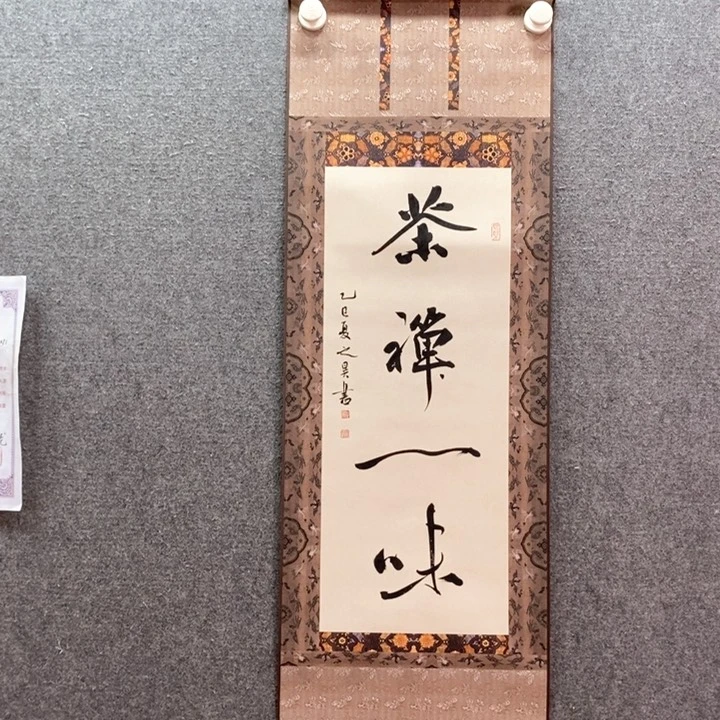 茶禪一味
乙巳夏之昊書